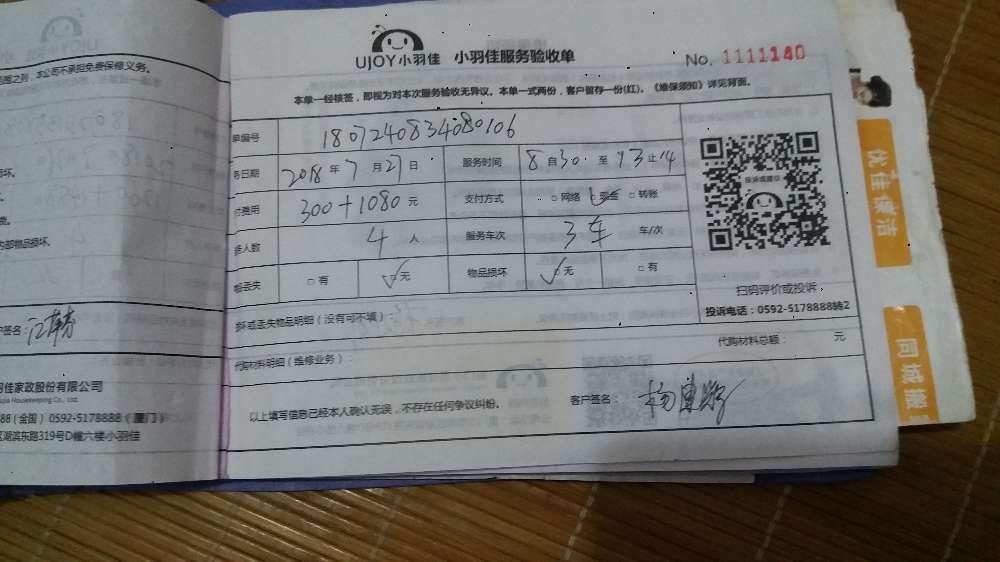 UJOY小羽佳
UJOY小羽佳 小羽佳服务验收单 No. 1111140
本单一经核签，即视为对本次服务验收无异议。本单一式两份，客户留存一份(红)。《维保须知》详见背面。
单编号 1807240834080106
务日期 2018 年 7 月 27 日 服务时间 8 自 30 至 13 止 14
费用 300+1080 元 支付方式 □网络 现金 □转账
人数 4 人 服务车次 3车 车/次
丢失 □有 ✓无 物品损坏 ✓无 □有
坏或丢失物品明细（没有可不填）：
扫码评价或投诉
投诉电话：0592-5178888转2
代购材料明细（维修业务）： 代购材料总额： 元
以上填写信息已经本人确认无误，不存在任何争议纠纷。 客户签名：
则，本公司不承担免费保修义务。
坏。
内部物品损坏。
户签名：
羽佳家政股份有限公司
Housekeeping Co., Ltd.
88（全国） 0592-5178888（厦门）
区湖滨东路319号D幢六楼小羽佳
优佳保洁
同城搬